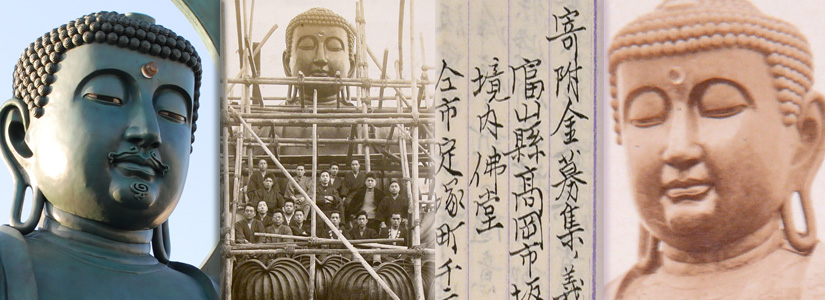 寄附金募集ノ義
富山縣高岡市坂
境内佛堂
仝市定塚町千